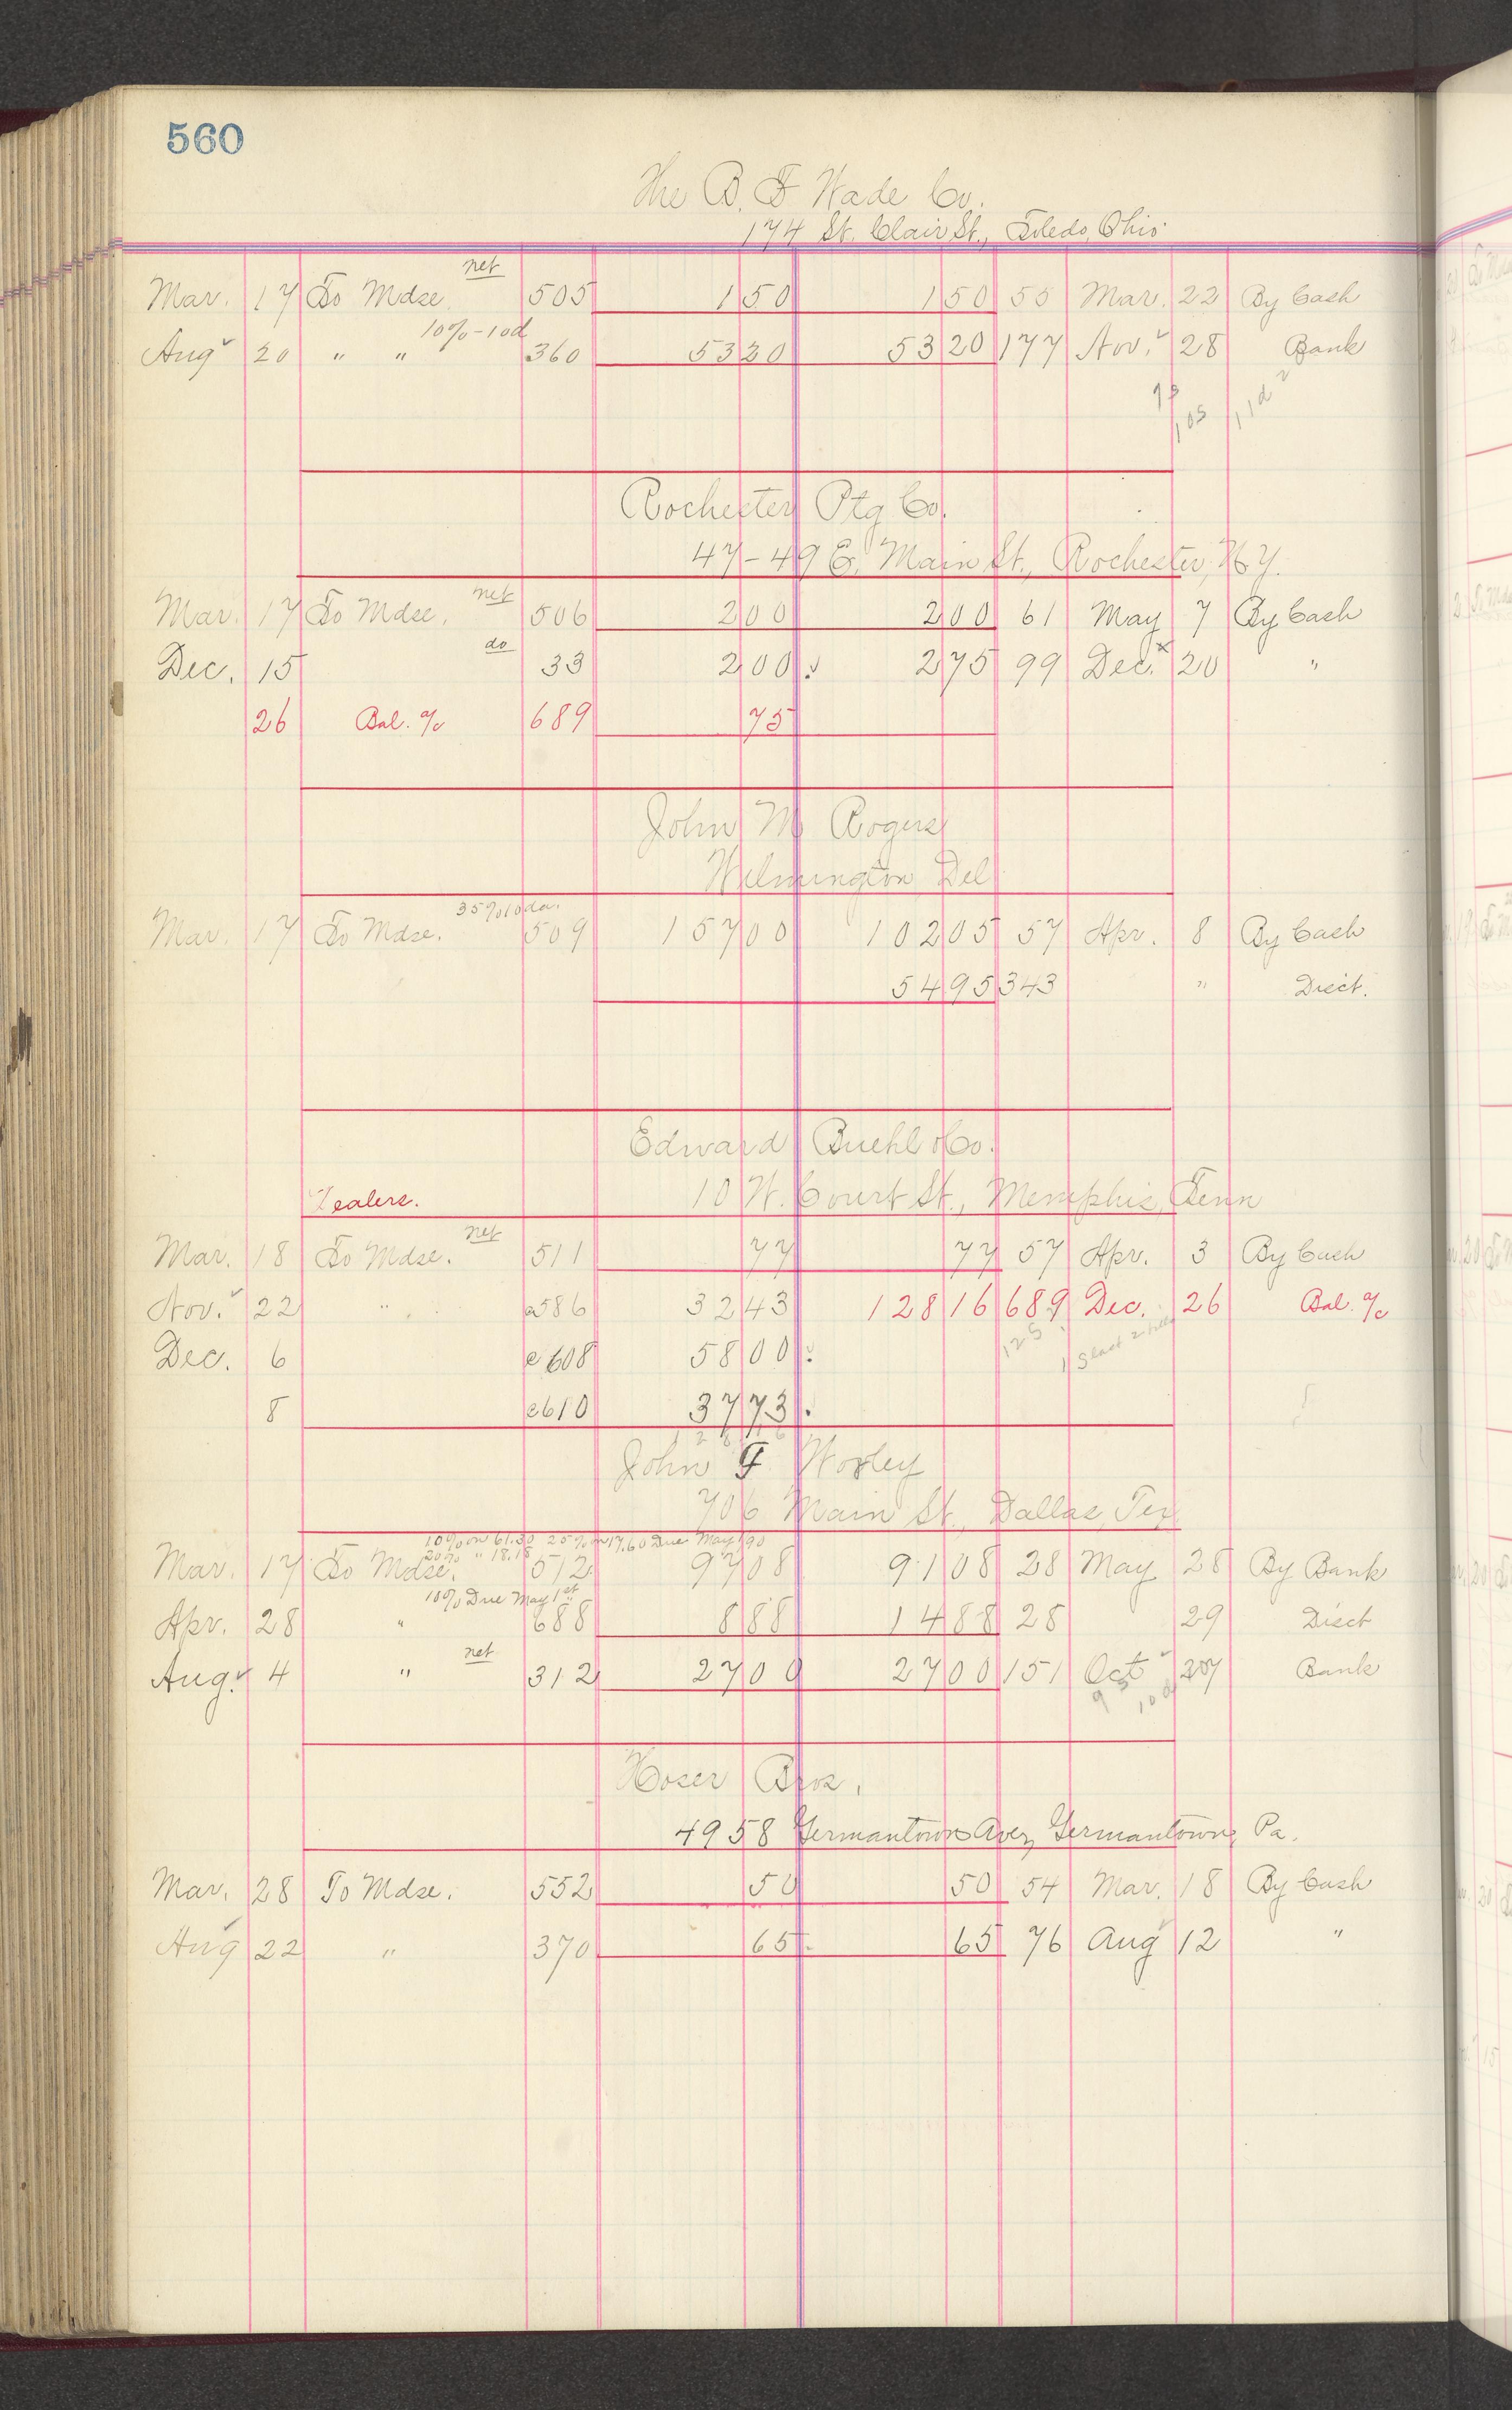 560
The B. F Wade Co.
174 St. Clair St., Toledo, Ohio
net
Mar. 17 To Mdse 505 1 50 1 50 55 Mar. 22 By Cash
10% - 10d
Aug 20 " " 360 53 20 53 20 177 Nov. 28 Bank
Rochester Ptg Co.
47-49 E. Main St., Rochester, N.Y.
net
Mar. 17 To Mdse. 506 2 00 2 00 61 May 7 By Cash
do
Dec. 15 33 2 00 2 75 99 Dec. 20 "
26 Bal. a/c 689 75
John M Rogers
Wilmington Del
35% 10 da.
Mar. 17 To Mdse. 509 157 00 102 05 57 Apr. 8 By Cash
54 95 343 " Disct.
Edward Buehl & Co.
Dealers. 10 N. Court St., Memphis, Tenn
net
Mar. 18 To Mdse. 511 77 77 57 Apr. 3 By Cash
Nov. 22 " a586 32 43 128 16 689 Dec. 26 Bal. a/c
Dec. 6 e608 58 00
8 e610 37 73
John F Worley
706 Main St., Dallas, Tex
10% on 61.30 25% on 17.60 Due May 1/90
20% " 18.18
Mar. 17 To Mdse. 512 97 08 91 08 28 May 28 By Bank
10% Due May 1st
Apr. 28 " 688 8 88 14 88 28 29 Disct
net
Aug. 4 " 312 27 00 27 00 151 Oct 27 Bank
Hoser Bros.
4958 Germantown Ave, Germantown, Pa.
Mar. 28 To Mdse. 552 50 50 54 Mar. 18 By Cash
Aug 22 " 370 65 65 76 Aug 12 "